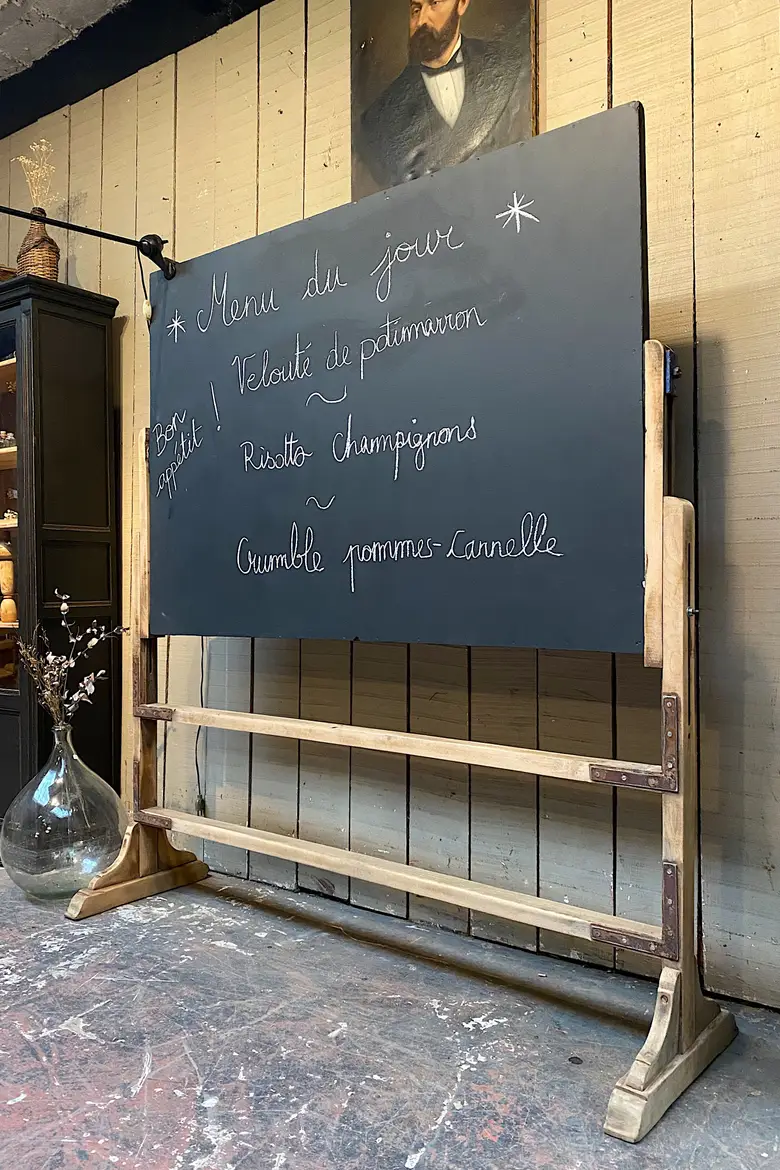 * Menu du jour *
Velouté de potimarron
~
Risotto Champignons
~
Crumble pommes-Cannelle
Bon
appétit !